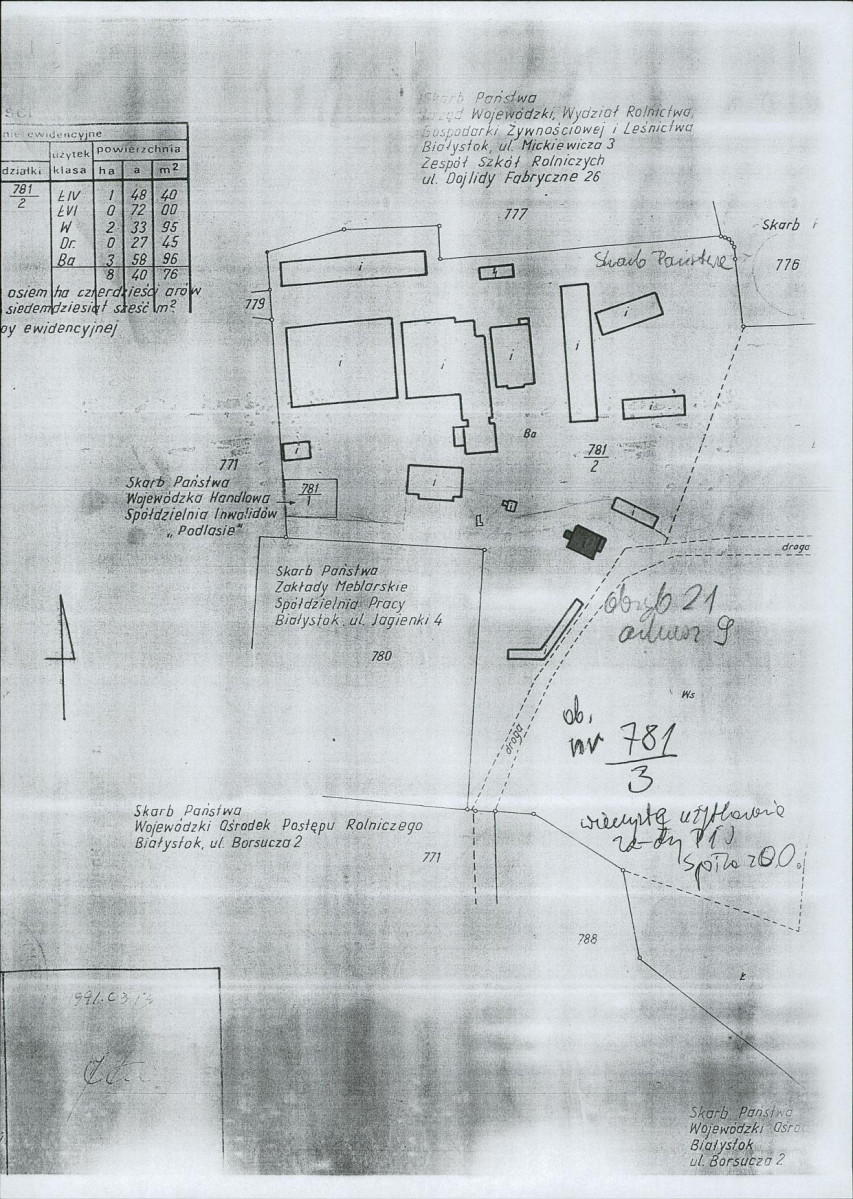 Skarb Państwa
Wojewódzki, Wydział Rolnictwa,
Gospodarki Żywnościowej i Leśnictwa
Białystok, ul. Mickiewicza 3
Zespół Szkół Rolniczych
ul. Dojlidy Fabryczne 26
777
ewidencyjne
działki użytek klasa powierzchnia ha a m²
781/2 ŁIV 1 48 40
ŁVI 0 72 00
W 2 33 95
Dr. 0 27 45
Ba 3 58 96
8 40 76
osiem ha czterdzieści arów
siedemdziesiąt sześć m²
ewidencyjnej
Skarb
776
Skarb Państwa
779
i
i
i
i
i
i
i
i
i
i
Ba
781/2
771
781/1
Skarb Państwa
Wojewódzka Handlowa
Spółdzielnia Inwalidów
„Podlasie"
droga
Skarb Państwa
Zakłady Meblarskie
Spółdzielnia Pracy
Białystok, ul. Jagienki 4
780
obręb 21
arkusz 9
Ws
droga
ob.
nr 781/3
Skarb Państwa
Wojewódzki Ośrodek Postępu Rolniczego
Białystok, ul. Borsucza 2
771
wieczyste użytkowanie
spółka z O.O.
788
Ł
Skarb Państwa
Wojewódzki
Białystok
ul. Borsucza 2